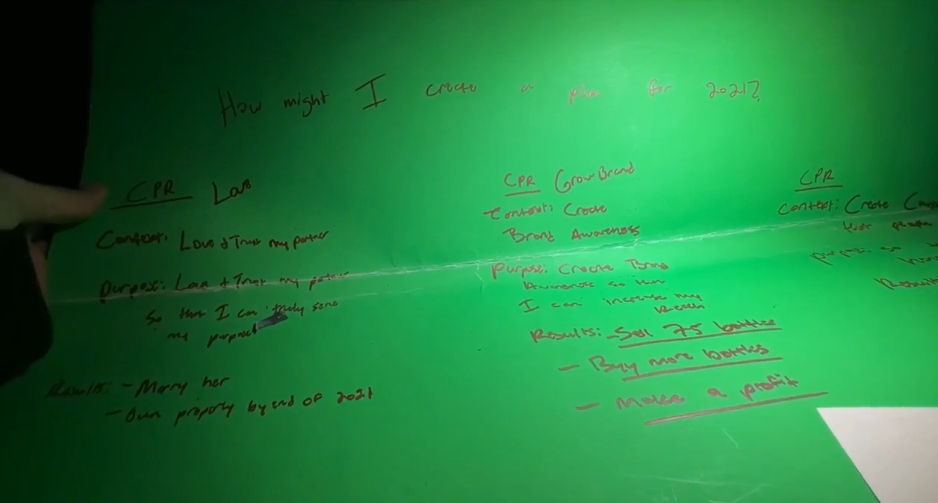 How might I create a plan for 2021?
CPR Love
Context: Love & Trust my partner
Purpose: Love & Trust my partner
so that I can truly serve
my purpose
Results: - Marry her
- Own property by end of 2021
CPR Grow Brand
Context: Create
Brand Awareness
Purpose: Create Brand
Awareness so that
I can increase my
Reach
Results: - Sell 75 bottles
- Buy more bottles
- Make a profit
CPR
Context: Create
purpose: so
Results